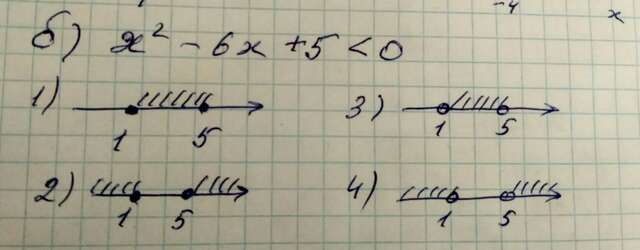 -4
x
б) x² - 6x + 5 < 0
1) 1 5
3) 1 5
2) 1 5
4) 1 5